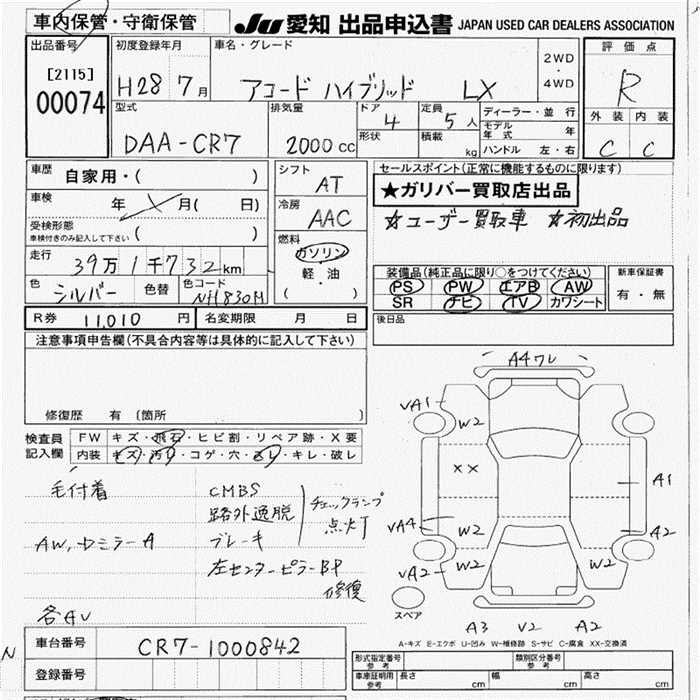 車内保管・守衛保管
JU 愛知 出品申込書 JAPAN USED CAR DEALERS ASSOCIATION
出品番号
[2115]
00074
初度登録年月
H28 7月
車名・グレード
アコード ハイブリッド LX
2WD
・
4WD
評価点
R
外装 内装
C C
型式
DAA-CR7
排気量
2000cc
ドア
4
形状
定員
5人
積載
kg
ディーラー・並行
モデル年式 年
ハンドル 左・右
車歴 自家用・( )
車検 年 月( 日)
受検形態
車検付きのみ記入して下さい ( )
走行 39万1千732km
色 シルバー 色替 色コード NH830M
シフト
AT
冷房
AAC
燃料
ガソリン
軽・油
( )
セールスポイント(正常に機能するものに限ります)
★ガリバー買取店出品
☆ユーザー買取車 ☆初出品
装備品(純正品に限り○をつけてください)
PS PW エアB AW
SR ナビ TV カワシート
新車保証書
有・無
R券 11,010円 名変期限 月 日
後日品
注意事項申告欄(不具合内容等は具体的に記入して下さい)
修復歴 有 (箇所 )
検査員記入欄
FW キズ・飛石・ヒビ割・リペア跡・X要
内装 キズ・汚れ・コゲ・穴・スレ・キレ・破レ
毛付着
AW,ドミラーA
各AV
CMBS
路外逸脱
ブレーキ
チェックランプ
点灯
左センターピラーBP
修復
A4ワレ
VA1
W2
XX
A1
VA4
W2
A2
VA2
W2
W2
スペア
A3 V2 A2
A-キズ E-エクボ U-凹み W-補修跡 S-サビ C-腐食 XX-交換済
N
車台番号 CR7-1000842
登録番号
形式指定番号 参考
類別区分番号 参考
車庫証明用 参考 長さ cm 幅 cm 高さ cm